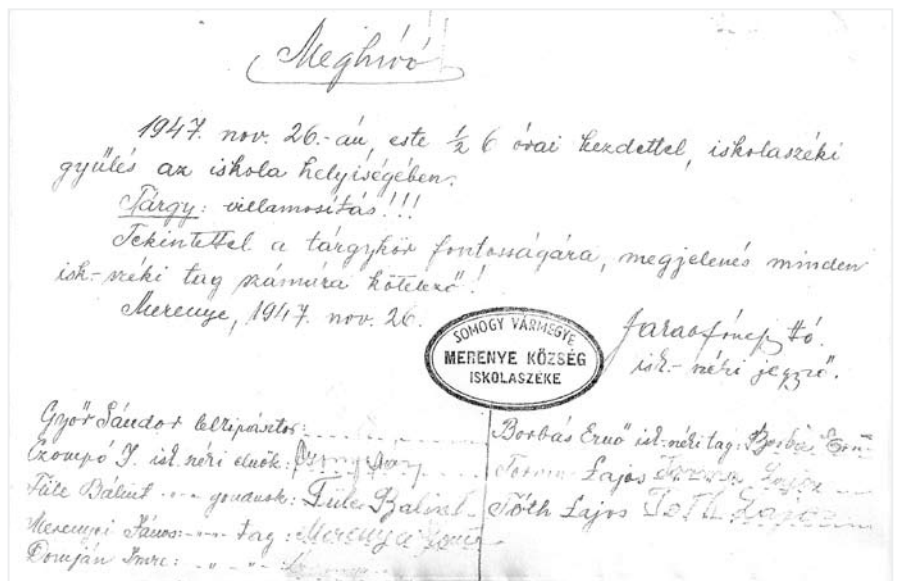 Meghívó!
1947. nov. 26.-án, este ½ 6 órai kezdettel, iskolaszéki
gyűlés az iskola helyiségében.
Tárgy: villamosítás!!!
Tekintettel a tárgykör fontosságára, megjelenés minden
isk.-széki tag számára kötelező!
Merenye, 1947. nov. 26.
SOMOGY VÁRMEGYE
MERENYE KÖZSÉG
ISKOLASZÉKE
isk.-széki jegyző.
Győr Sándor lelkipásztor:
Czompó J. isk. széki elnök:
Füle Bálint gondnok: Füle Bálint
Merenyei János: tag: Merenyei
Domján Imre: " "
Borbás Ernő isk. széki tag: Borbás Ernő
Lajos
Tóth Lajos Tóth Lajos